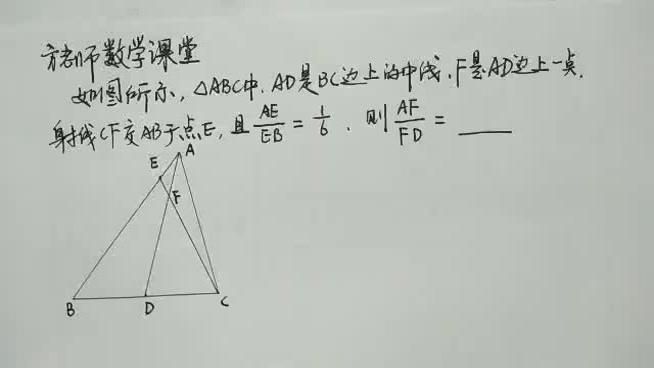 方老师数学课堂
如图所示,△ABC中,AD是BC边上的中线,F是AD边上一点,
射线CF交AB于点E,且AE/EB=1/6,则AF/FD=____
A
E
F
B
D
C